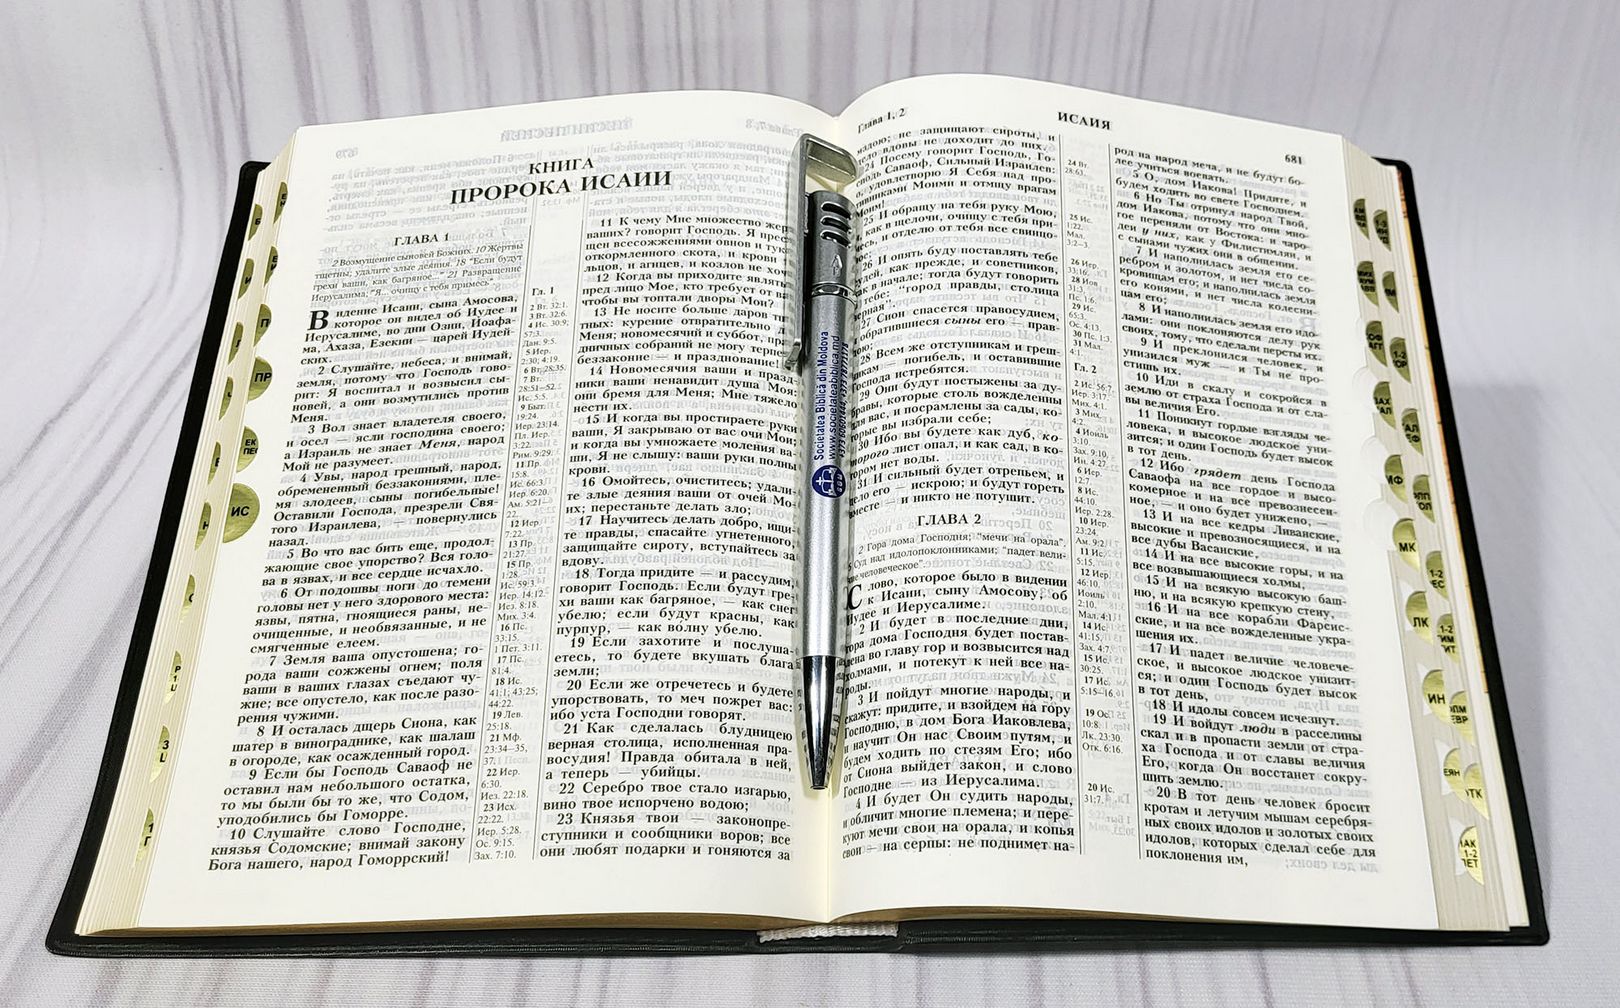 КНИГА
ПРОРОКА ИСАИИ
ГЛАВА 1
2 Возмущение сыновей Божиих. 10 Жертвы
тщетны; удалите злые деяния. 18 "Если будут
грехи ваши, как багряное..." 21 Развращение
Иерусалима; "Я... очищу с тебя примесь".
Видение Исаии, сына Амосова,
которое он видел об Иудее и
Иерусалиме, во дни Озии, Иоафа-
ма, Ахаза, Езекии — царей Иудей-
ских.
2 Слушайте, небеса, и внимай,
земля, потому что Господь гово-
рит: Я воспитал и возвысил сы-
новей, а они возмутились против
Меня.
3 Вол знает владетеля своего,
и осел — ясли господина своего;
а Израиль не знает Меня, народ
Мой не разумеет.
4 Увы, народ грешный, народ,
обремененный беззакониями, пле-
мя злодеев, сыны погибельные!
Оставили Господа, презрели Свя-
того Израилева, — повернулись
назад.
5 Во что вас бить еще, продол-
жающие свое упорство? Вся голо-
ва в язвах, и все сердце исчахло.
6 От подошвы ноги до темени
головы нет у него здорового места:
язвы, пятна, гноящиеся раны, не-
очищенные, и необвязанные, и не
смягченные елеем.
7 Земля ваша опустошена; го-
рода ваши сожжены огнем; поля
ваши в ваших глазах съедают чу-
жие; все опустело, как после разо-
рения чужими.
8 И осталась дщерь Сиона, как
шатер в винограднике, как шалаш
в огороде, как осажденный город.
9 Если бы Господь Саваоф не
оставил нам небольшого остатка,
то мы были бы то же, что Содом,
уподобились бы Гоморре.
10 Слушайте слово Господне,
князья Содомские; внимай закону
Бога нашего, народ Гоморрский!
Гл. 1
2 Вт. 32:1.
3 Вт. 32:6.
4 Ис. 30:9;
57:3.
Дан. 9:5.
5 Иер.
2:30; 4:19.
6 Вт. 28:35.
7 Вт.
28:51–52.
Ис. 5:5.
9 Быт.
19:24.
Иер. 23:14.
Пл. Иер.
3:22.
Рим. 9:29.
11 Пр.
15:8.
Ис. 66:3.
Иер. 6:20.
Ам. 5:21–
22.
12 Иер.
7:22.
13 Пр.
21:27.
15 Пр.
1:28.
Ис. 59:3.
Иер. 14:12.
Иез. 8:18.
Мих. 3:4.
16 Пс.
33:15.
1 Пет. 3:11.
17 Пс.
81:4.
18 Ис.
41:1; 43:25;
44:22.
19 Лев.
25:18.
21 Мф.
23:34–35,
37.
22 Иер.
6:30.
Иез. 22:18.
23 Исх.
22:22.
Иер. 5:28.
Ос. 9:15.
Зах. 7:10.
11 К чему Мне множество жер
ваших? говорит Господь. Я прес
щен всесожжениями овнов и тук
откормленного скота, и крови
льцов, и агнцев, и козлов не хоч
12 Когда вы приходите являть
пред лицо Мое, кто требует от ва
чтобы вы топтали дворы Мои?
13 Не носите больше даров т
тных: курение отвратительно
Меня; новомесячий и суббот, пр
дничных собраний не могу терп
беззаконие — и празднование!
14 Новомесячия ваши и празд-
ники ваши ненавидит душа Моя:
они бремя для Меня; Мне тяжело
нести их.
15 И когда вы простираете руки
ваши, Я закрываю от вас очи Мои;
и когда вы умножаете моления ва-
ши, Я не слышу: ваши руки полны
крови.
16 Омойтесь, очиститесь; удали-
те злые деяния ваши от очей Мо-
их; перестаньте делать зло;
17 Научитесь делать добро, ищи-
те правды, спасайте угнетенного,
защищайте сироту, вступайтесь за
вдову.
18 Тогда придите — и рассудим,
говорит Господь. Если будут гре-
хи ваши как багряное, — как снег
убелю; если будут красны, как
пурпур, — как волну убелю.
19 Если захотите и послуша-
етесь, то будете вкушать блага
земли;
20 Если же отречетесь и будете
упорствовать, то меч пожрет вас:
ибо уста Господни говорят.
21 Как сделалась блудницею
верная столица, исполненная пра-
восудия! Правда обитала в ней,
а теперь — убийцы.
22 Серебро твое стало изгарью,
вино твое испорчено водою;
23 Князья твои — законопре-
ступники и сообщники воров; все
они любят подарки и гоняются за
Societatea Biblică din Moldova
www.societateabiblica.md
Глава 1, 2
ИСАИЯ
681
мздою; не защищают сироты, и
дело вдовы не доходит до них.
24 Посему говорит Господь, Го-
сподь Саваоф, Сильный Израилев:
о, удовлетворю Я Себя над про-
тивниками Моими и отмщу врагам
Моим!
25 И обращу на тебя руку Мою,
как в щелочи, очищу с тебя при-
месь, и отделю от тебя все свинцо-
26 И опять буду поставлять тебе
судей, как прежде, и советников,
как вначале; тогда будут говорить
о тебе: "город правды, столица
верная".
27 Сион спасется правосудием,
обратившиеся сыны его — прав-
дою;
28 Всем же отступникам и греш-
никам — погибель, и оставившие
Господа истребятся.
29 Они будут постыжены за ду-
бравы, которые столь вожделенны
для вас, и посрамлены за сады, ко-
торые вы избрали себе;
30 Ибо вы будете как дуб, ко-
которого лист опал, и как сад, в ко-
тором нет воды.
31 И сильный будет отрепьем, и
дело его — искрою; и будут гореть
вместе — и никто не потушит.
ГЛАВА 2
2 Гора дома Господня; "мечи на орала".
5 Суд над идолопоклонниками; "падет вели-
чие человеческое".
Слово, которое было в видении
к Исаии, сыну Амосову, об
Иудее и Иерусалиме.
2 И будет в последние дни,
гора дома Господня будет постав-
лена во главу гор и возвысится над
холмами, и потекут к ней все на-
роды.
3 И пойдут многие народы, и
скажут: придите, и взойдем на гору
Господню, в дом Бога Иаковлева,
и научит Он нас Своим путям, и
будем ходить по стезям Его; ибо
от Сиона выйдет закон, и слово
Господне — из Иерусалима.
4 И будет Он судить народы,
и обличит многие племена; и пере-
куют мечи свои на орала, и копья
свои — на серпы: не поднимет на-
24 Вт.
28:63.
25 Ис.
1:22.
Мал.
3:2–3.
26 Иер.
33:16.
28 Иов
31:3.
Пс. 1:6.
29 Ис.
65:3.
Ос. 4:13.
30 Пс. 1:3.
31 Мал.
4:1.
Гл. 2
2 Ис. 56:7.
Иер. 3:17.
Мих. 4:1.
3 Мих.
4:2.
4 Иоиль
3:10.
Зах. 9:10.
Ин. 4:27.
6 Иер.
12:7.
8 Ис.
44:10.
Иер. 2:28.
10 Иер.
23:24.
Ам. 9:2.
11 Ис.
5:15.
12 Иер.
46:10.
Иоиль
2:10.
Мал. 4:1.
14 Ис.
41:15.
Зах. 4:7.
15 Ис.
30:25.
17 Ис.
5:15–16.
19 Ос.
10:8.
Лк. 23:30.
Отк. 6:16.
20 Ис.
31:7.
род на народ меча, и не будут бо-
лее учиться воевать.
5 О, дом Иакова! Придите, и
будем ходить во свете Господнем.
6 Но Ты отринул народ Твой,
дом Иакова, потому что они мно-
гое переняли от Востока: и чаро-
деи у них, как у Филистимлян, и
с сынами чужих они в общении.
7 И наполнилась земля его се-
ребром и золотом, и нет числа со-
кровищам его; и наполнилась земля
его конями, и нет числа колесни-
цам его;
8 И наполнилась земля его идо-
лами: они поклоняются делу рук
своих, тому, что сделали персты их.
9 И преклонился человек, и
унизился муж — и Ты не про-
стишь их.
10 Иди в скалу и сокройся в
землю от страха Господа и от сла-
вы величия Его.
11 Поникнут гордые взгляды че-
ловека, и высокое людское уни-
зится; и один Господь будет высок
в тот день.
12 Ибо грядет день Господа
Саваофа на все гордое и высо-
комерное и на все превознесен-
ное, — и оно будет унижено, —
13 И на все кедры Ливанские,
высокие и превозносящиеся, и на
все дубы Васанские,
14 И на все высокие горы, и на
все возвышающиеся холмы,
15 И на всякую высокую баш-
ню, и на всякую крепкую стену,
16 И на все корабли Фарсис-
ские, и на все вожделенные укра-
шения их.
17 И падет величие человече-
ское, и высокое людское унизит-
ся; и один Господь будет высок
в тот день,
18 И идолы совсем исчезнут.
19 И войдут люди в расселины
скал и в пропасти земли от стра-
ха Господа и от славы величия
Его, когда Он восстанет сокру-
шить землю.
20 В тот день человек бросит
кротам и летучим мышам серебря-
ных своих идолов и золотых своих
идолов, которых сделал себе для
поклонения им,
ПР
ИС
МК
ЛК
ИН